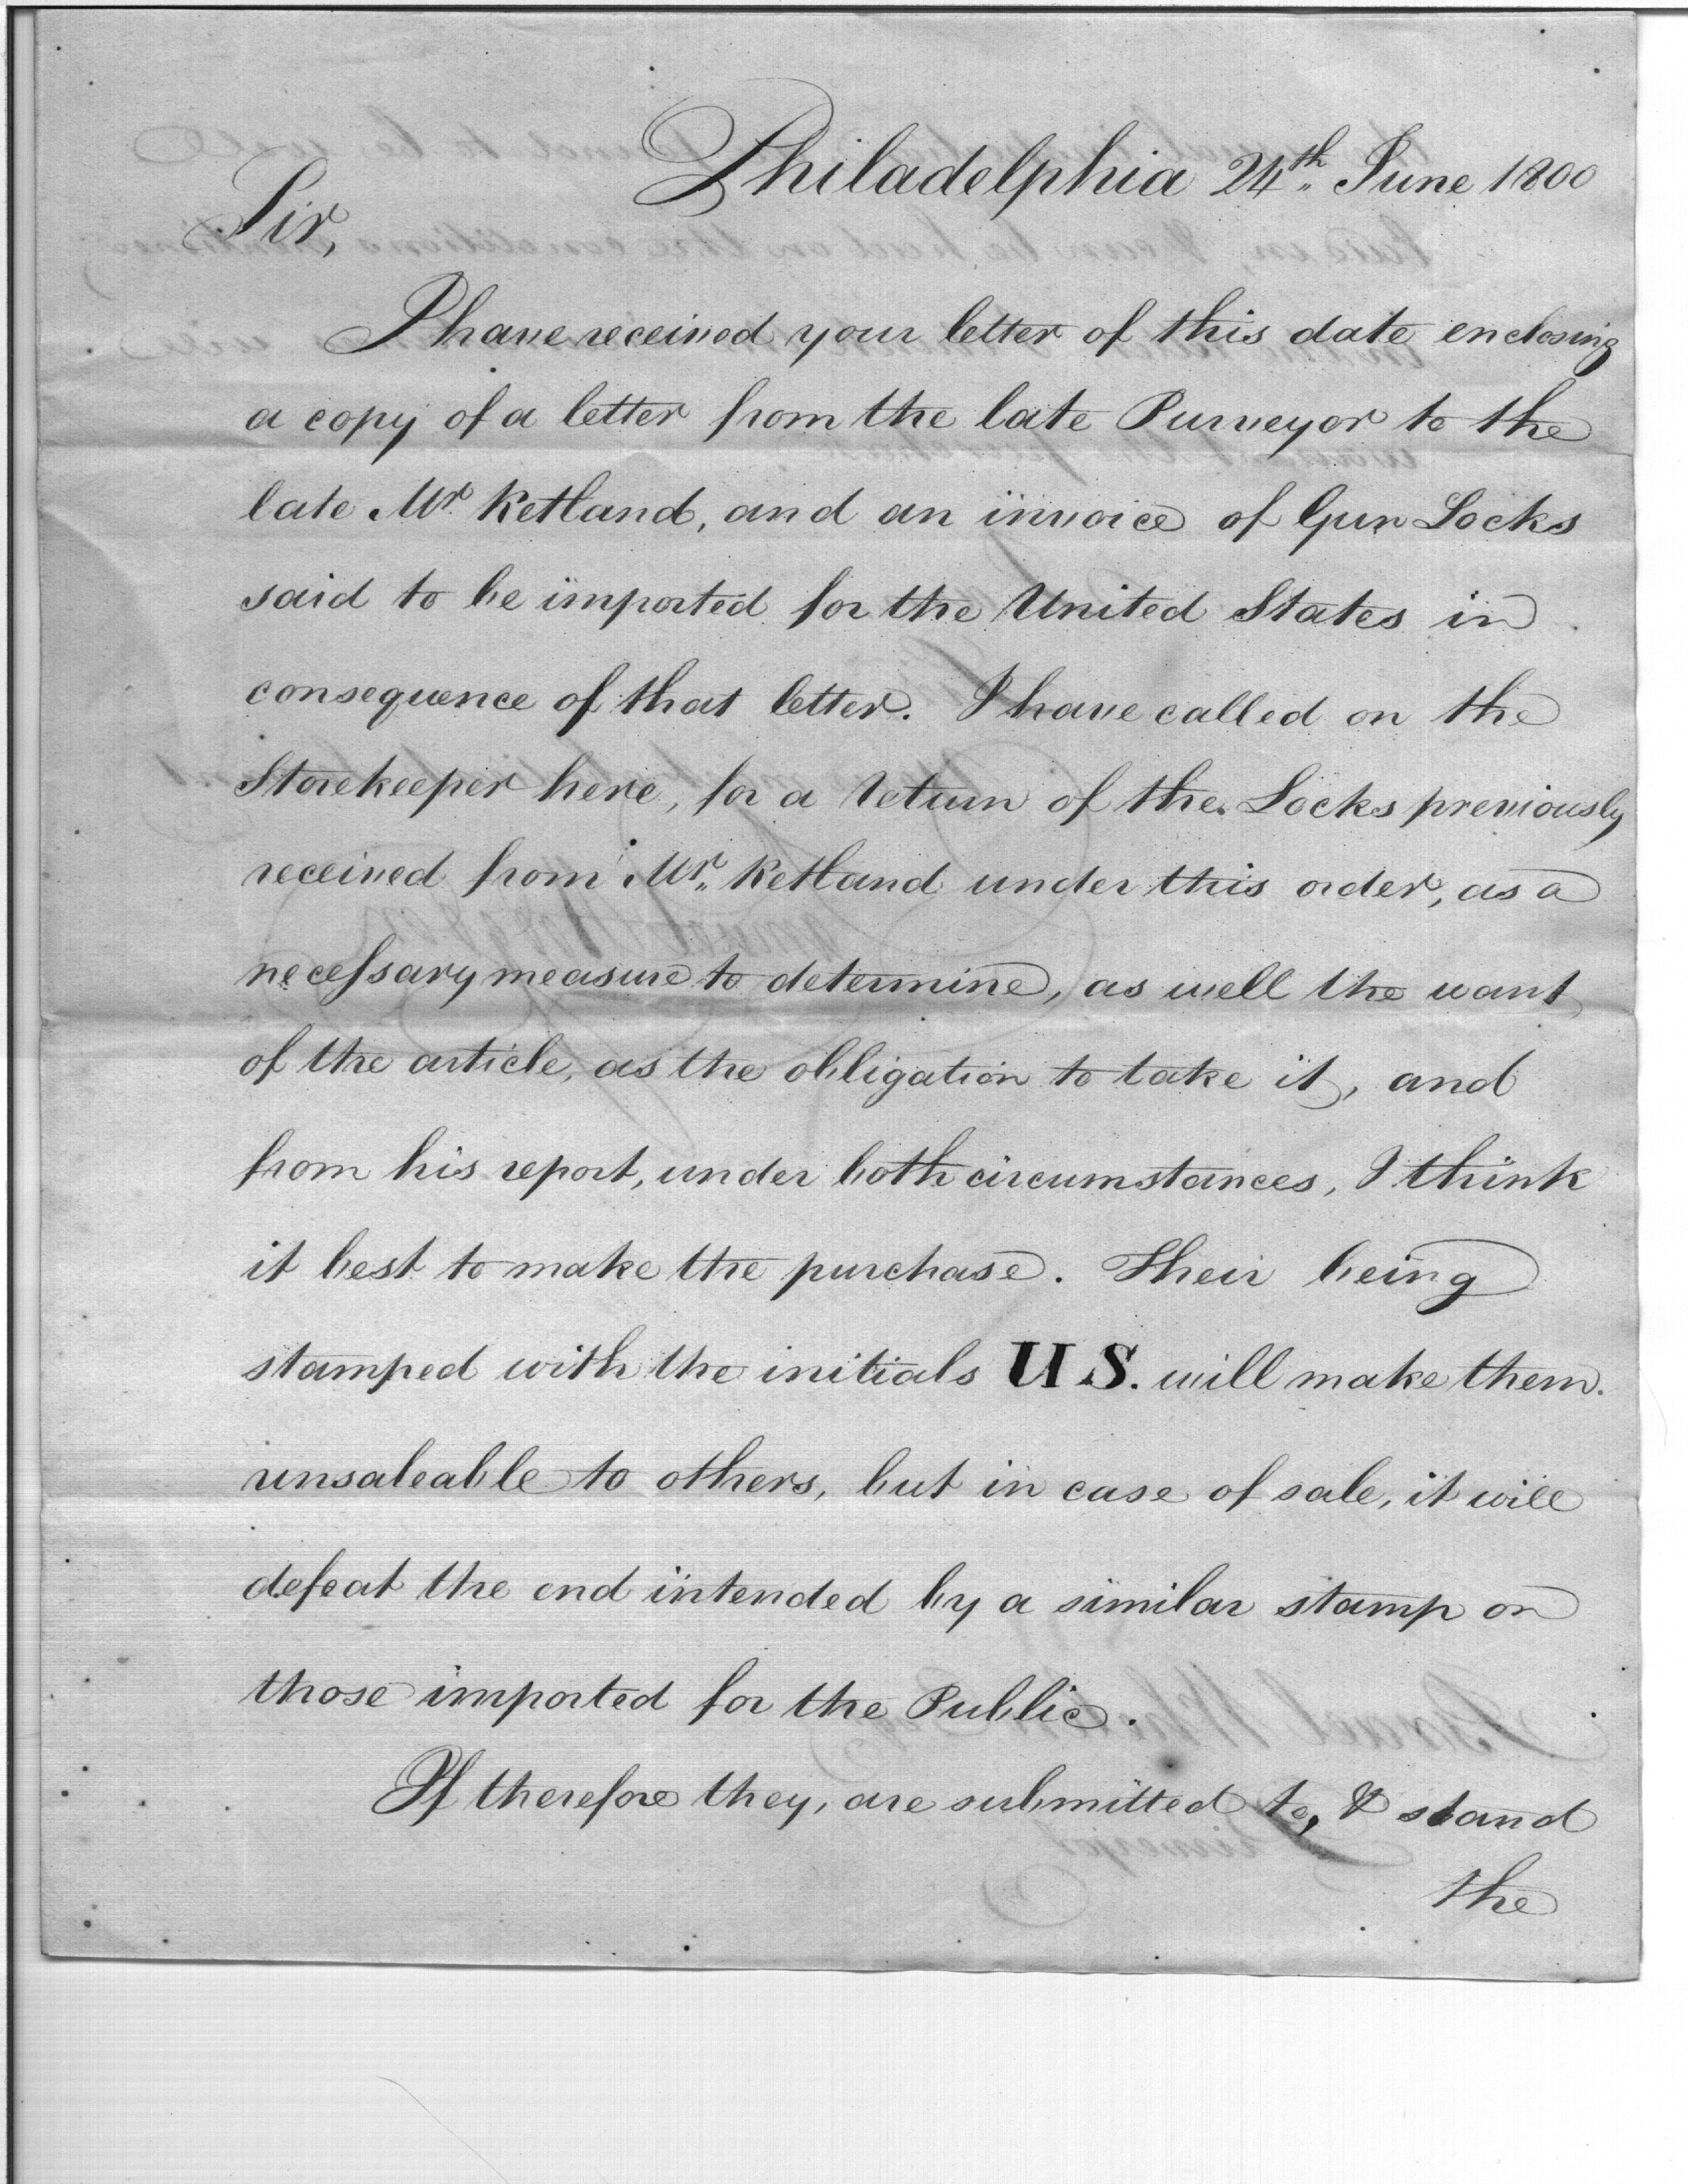 Philadelphia 24th. June 1800
Sir,
I have received your letter of this date enclosing
a copy of a letter from the late Purveyor to the
late Mr. Ketland, and an invoice of Gun Locks
said to be imported for the United States in
consequence of that letter. I have called on the
Storekeeper here, for a return of the Locks previously
received from Mr. Ketland under this order, as a
necessary measure to determine, as well the want
of the article, as the obligation to take it, and
from his report, under both circumstances, I think
it best to make the purchase. Their being
stamped with the initials U S. will make them
unsaleable to others, but in case of sale, it will
defeat the end intended by a similar stamp on
those imported for the Public.
If therefore they, are submitted to, & stand
the